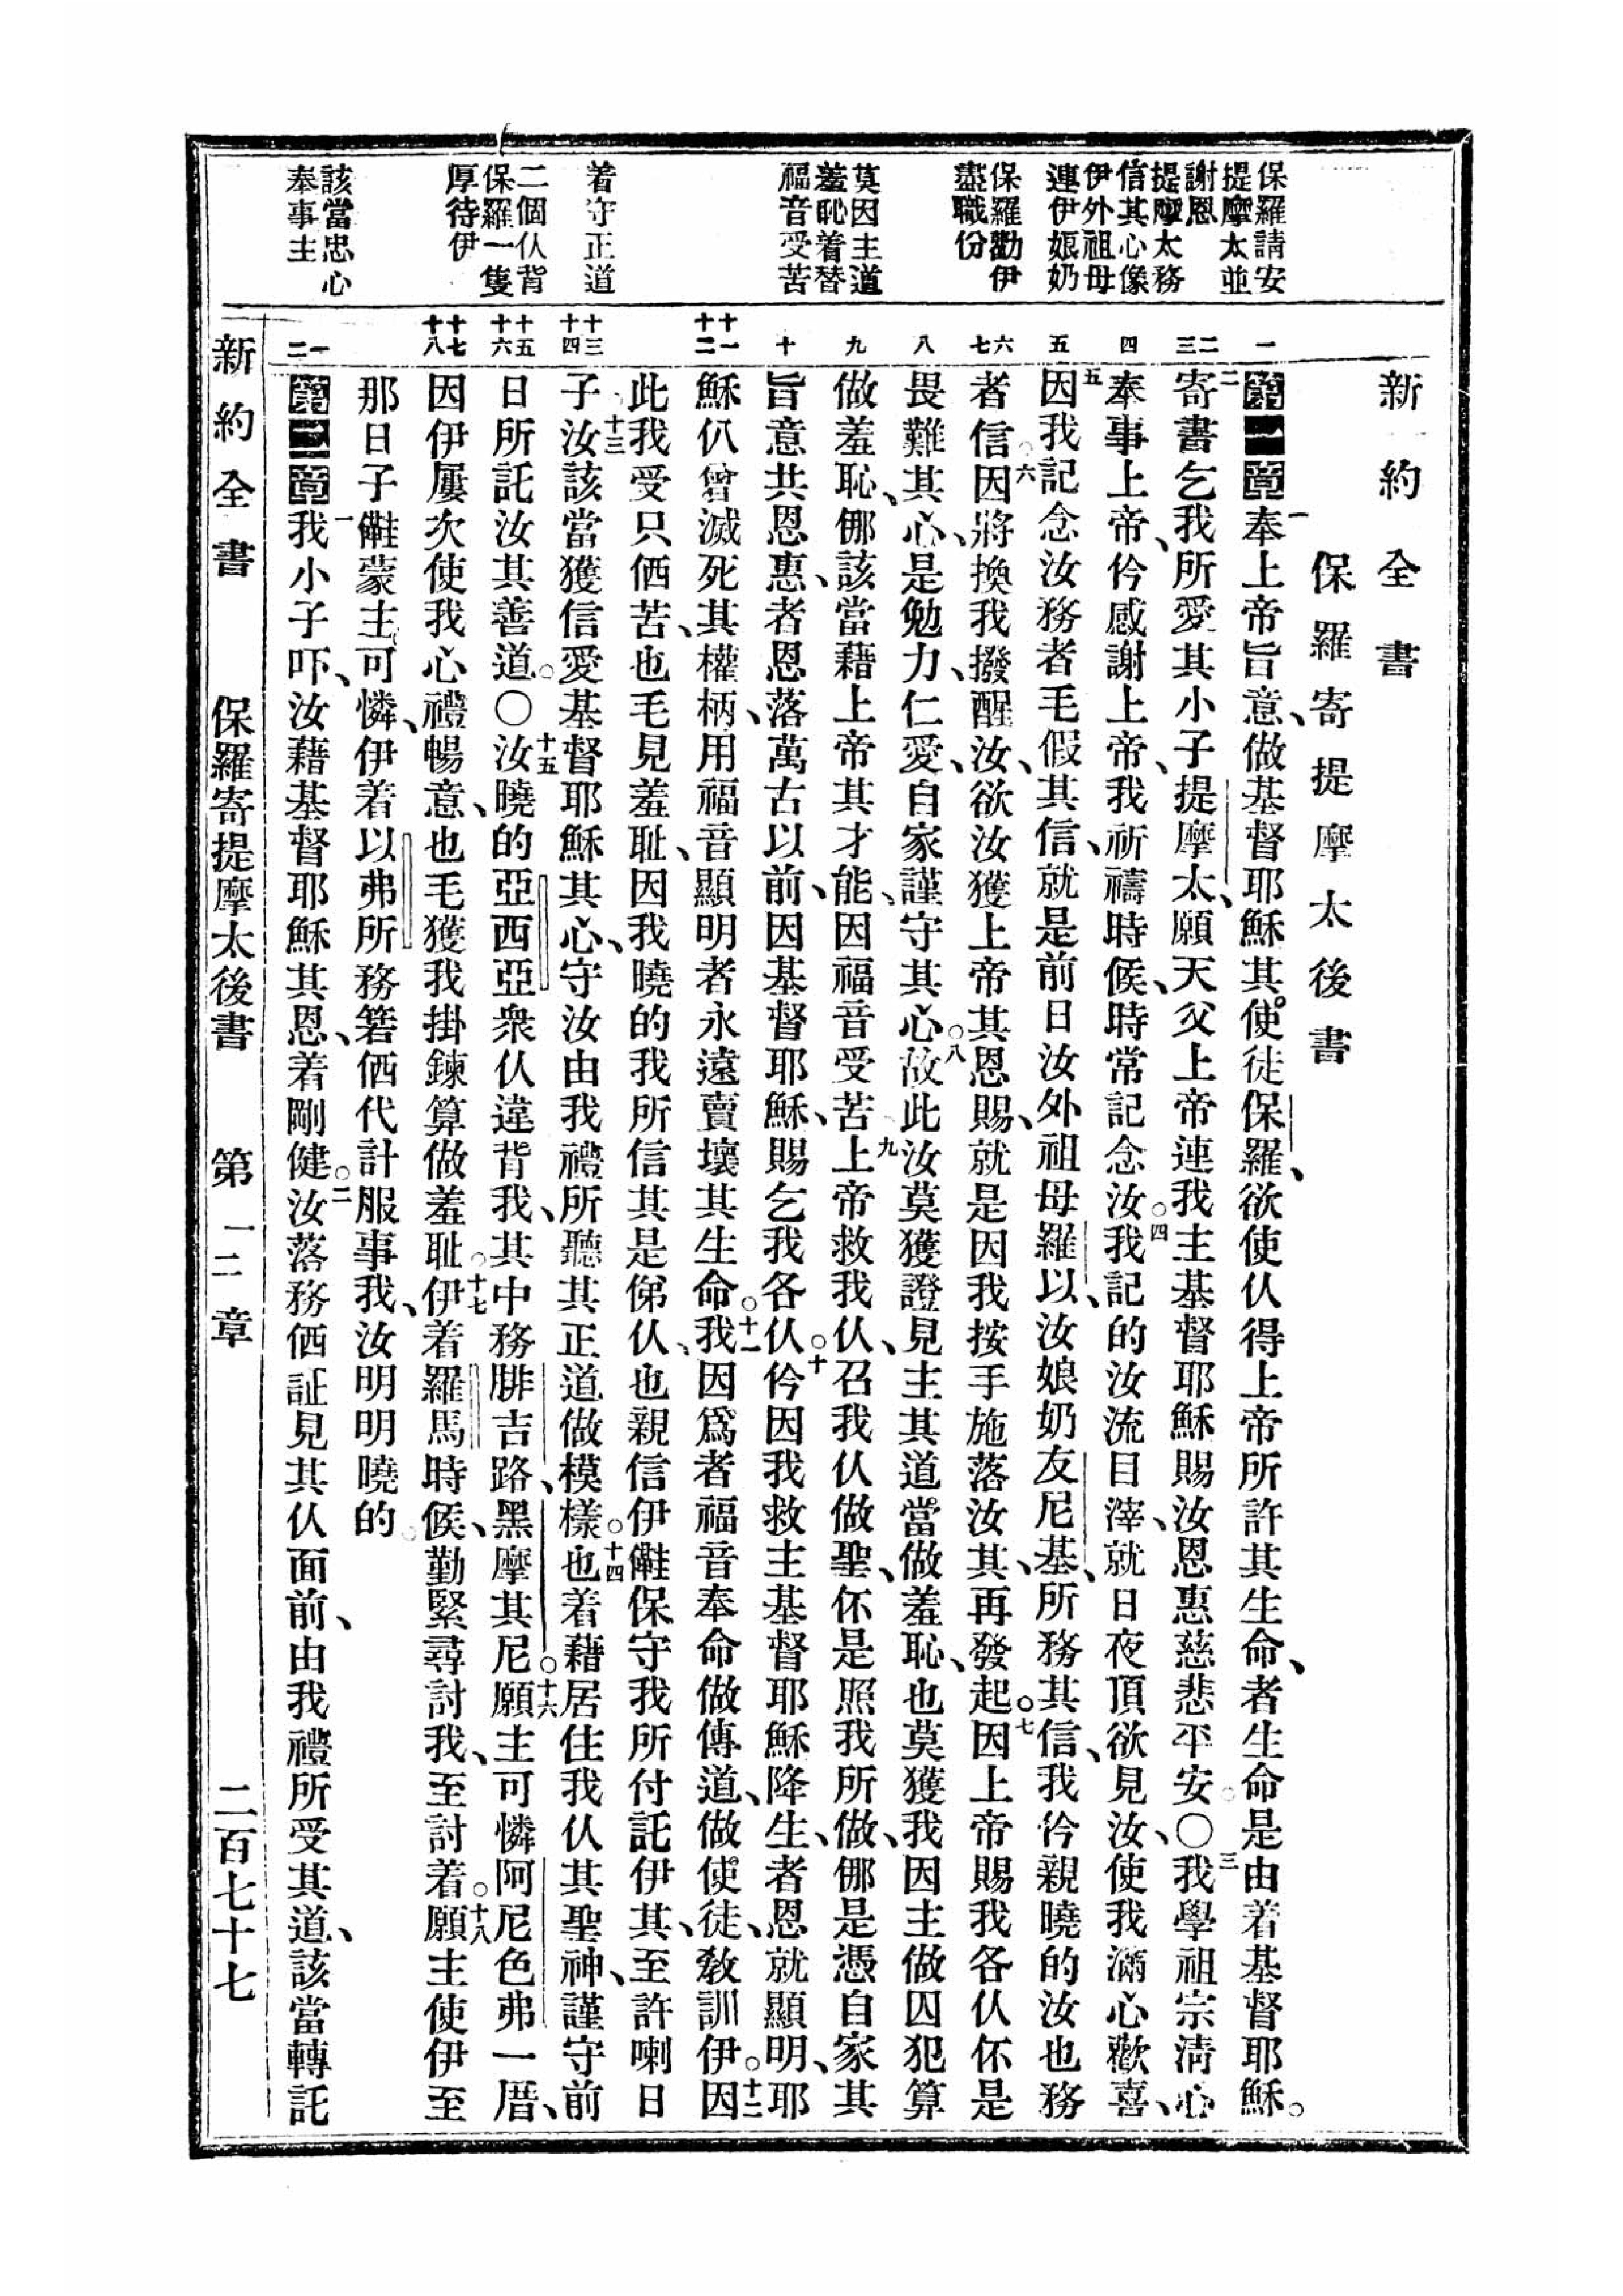 新約全書
保羅寄提摩太後書
保羅請安
提摩太並
謝恩
提摩太務
信其心像
伊外祖母
連伊娘奶
保羅勸伊
盡職份
莫因主道
羞恥着替
福音受苦
着守正道
二個仈背
保羅一隻
厚待伊
該當忠心
奉事主
一
二
三
四
五
六
七
八
九
十
十一
十二
十三
十四
十五
十六
十七
十八
一
二
第一章一奉上帝旨意、做基督耶穌其使徒保羅、欲使仈得上帝所許其生命、者生命是由着基督耶穌。
二寄書乞我所愛其小子提摩太、願天父上帝連我主基督耶穌賜汝恩惠慈悲平安。〇三我學祖宗淸心
奉事上帝、仱感謝上帝、我祈禱時候、時常記念汝。四我記的汝流目滓、就日夜頂欲見汝、使我滿心歡喜、
五因我記念汝務者毛假其信、就是前日汝外祖母羅以、汝娘奶友尼基、所務其信、我仱親曉的汝也務
者信。六因將換我撥醒汝、欲汝獲上帝其恩賜、就是因我按手施落汝其、再發起。七因上帝賜我各仈伓是
畏難其心、是勉力、仁愛、自家謹守其心。八故此汝莫獲證見主其道當做羞恥、也莫獲我因主做囚犯算
做羞恥、㑚該當藉上帝其才能、因福音受苦。九上帝救我仈、召我仈做聖、伓是照我所做、㑚是憑自家其
旨意共恩惠、者恩落萬古以前、因基督耶穌、賜乞我各仈。十仱因我救主基督耶穌降生、者恩就顯明、耶
穌仈曾滅死其權柄、用福音顯明者永遠賣壞其生命。十一我因爲者福音奉命做傳道、做使徒、敎訓伊。十二因
此我受只㐁苦、也毛見羞耻、因我曉的我所信其是㑋仈、也親信伊㒕保守我所付託伊其、至許喇日
子。十三汝該當獲信愛基督耶穌其心、守汝由我禮所聽其正道做模樣。十四也着藉居住我仈其聖神、謹守前
日所託汝其善道。〇十五汝曉的亞西亞衆仈違背我、其中務腓吉路、黑摩其尼。十六願主可憐阿尼色弗一厝、
因伊屢次使我心禮暢意、也毛獲我掛鍊算做羞耻。十七伊着羅馬時候、勤緊尋討我、至討着。十八願主使伊至
那日子㒕蒙主可憐、伊着以弗所務㐁代計服事我、汝明明曉的。
第二章一我小子吓、汝藉基督耶穌其恩、着剛健。二汝落務㐁証見其仈面前、由我禮所受其道、該當轉託
新約全書　保羅寄提摩太後書　第一二章　二百七十七